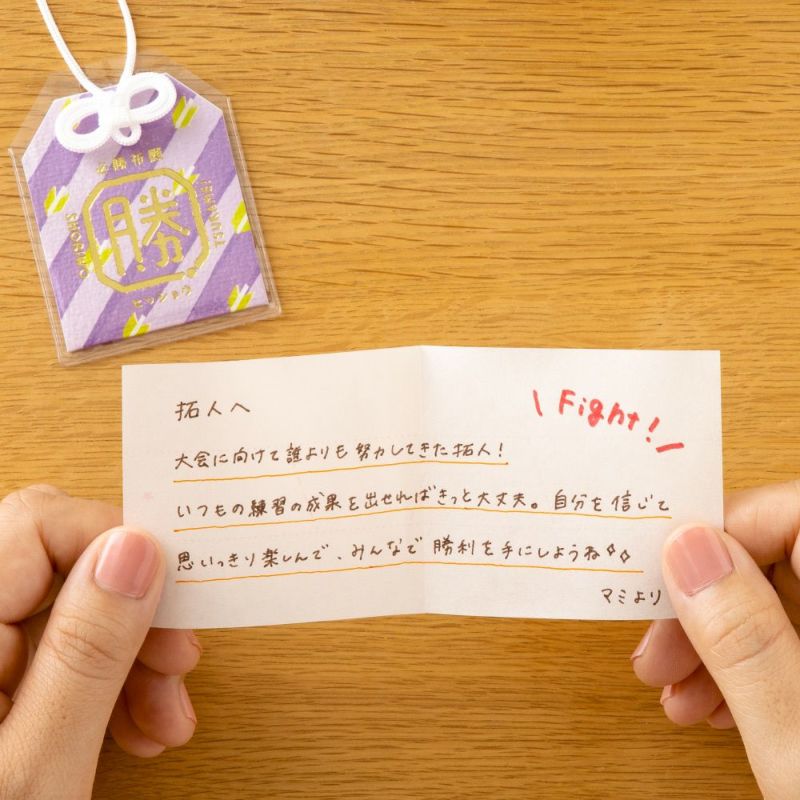 必勝祈願
勝
SHORI
ヒッショウ
拓人へ
\ Fight! /
大会に向けて誰よりも努力してきた拓人!
いつもの練習の成果を出せればきっと大丈夫。自分を信じて
思いっきり楽しんで、みんなで勝利を手にしようね
マミより